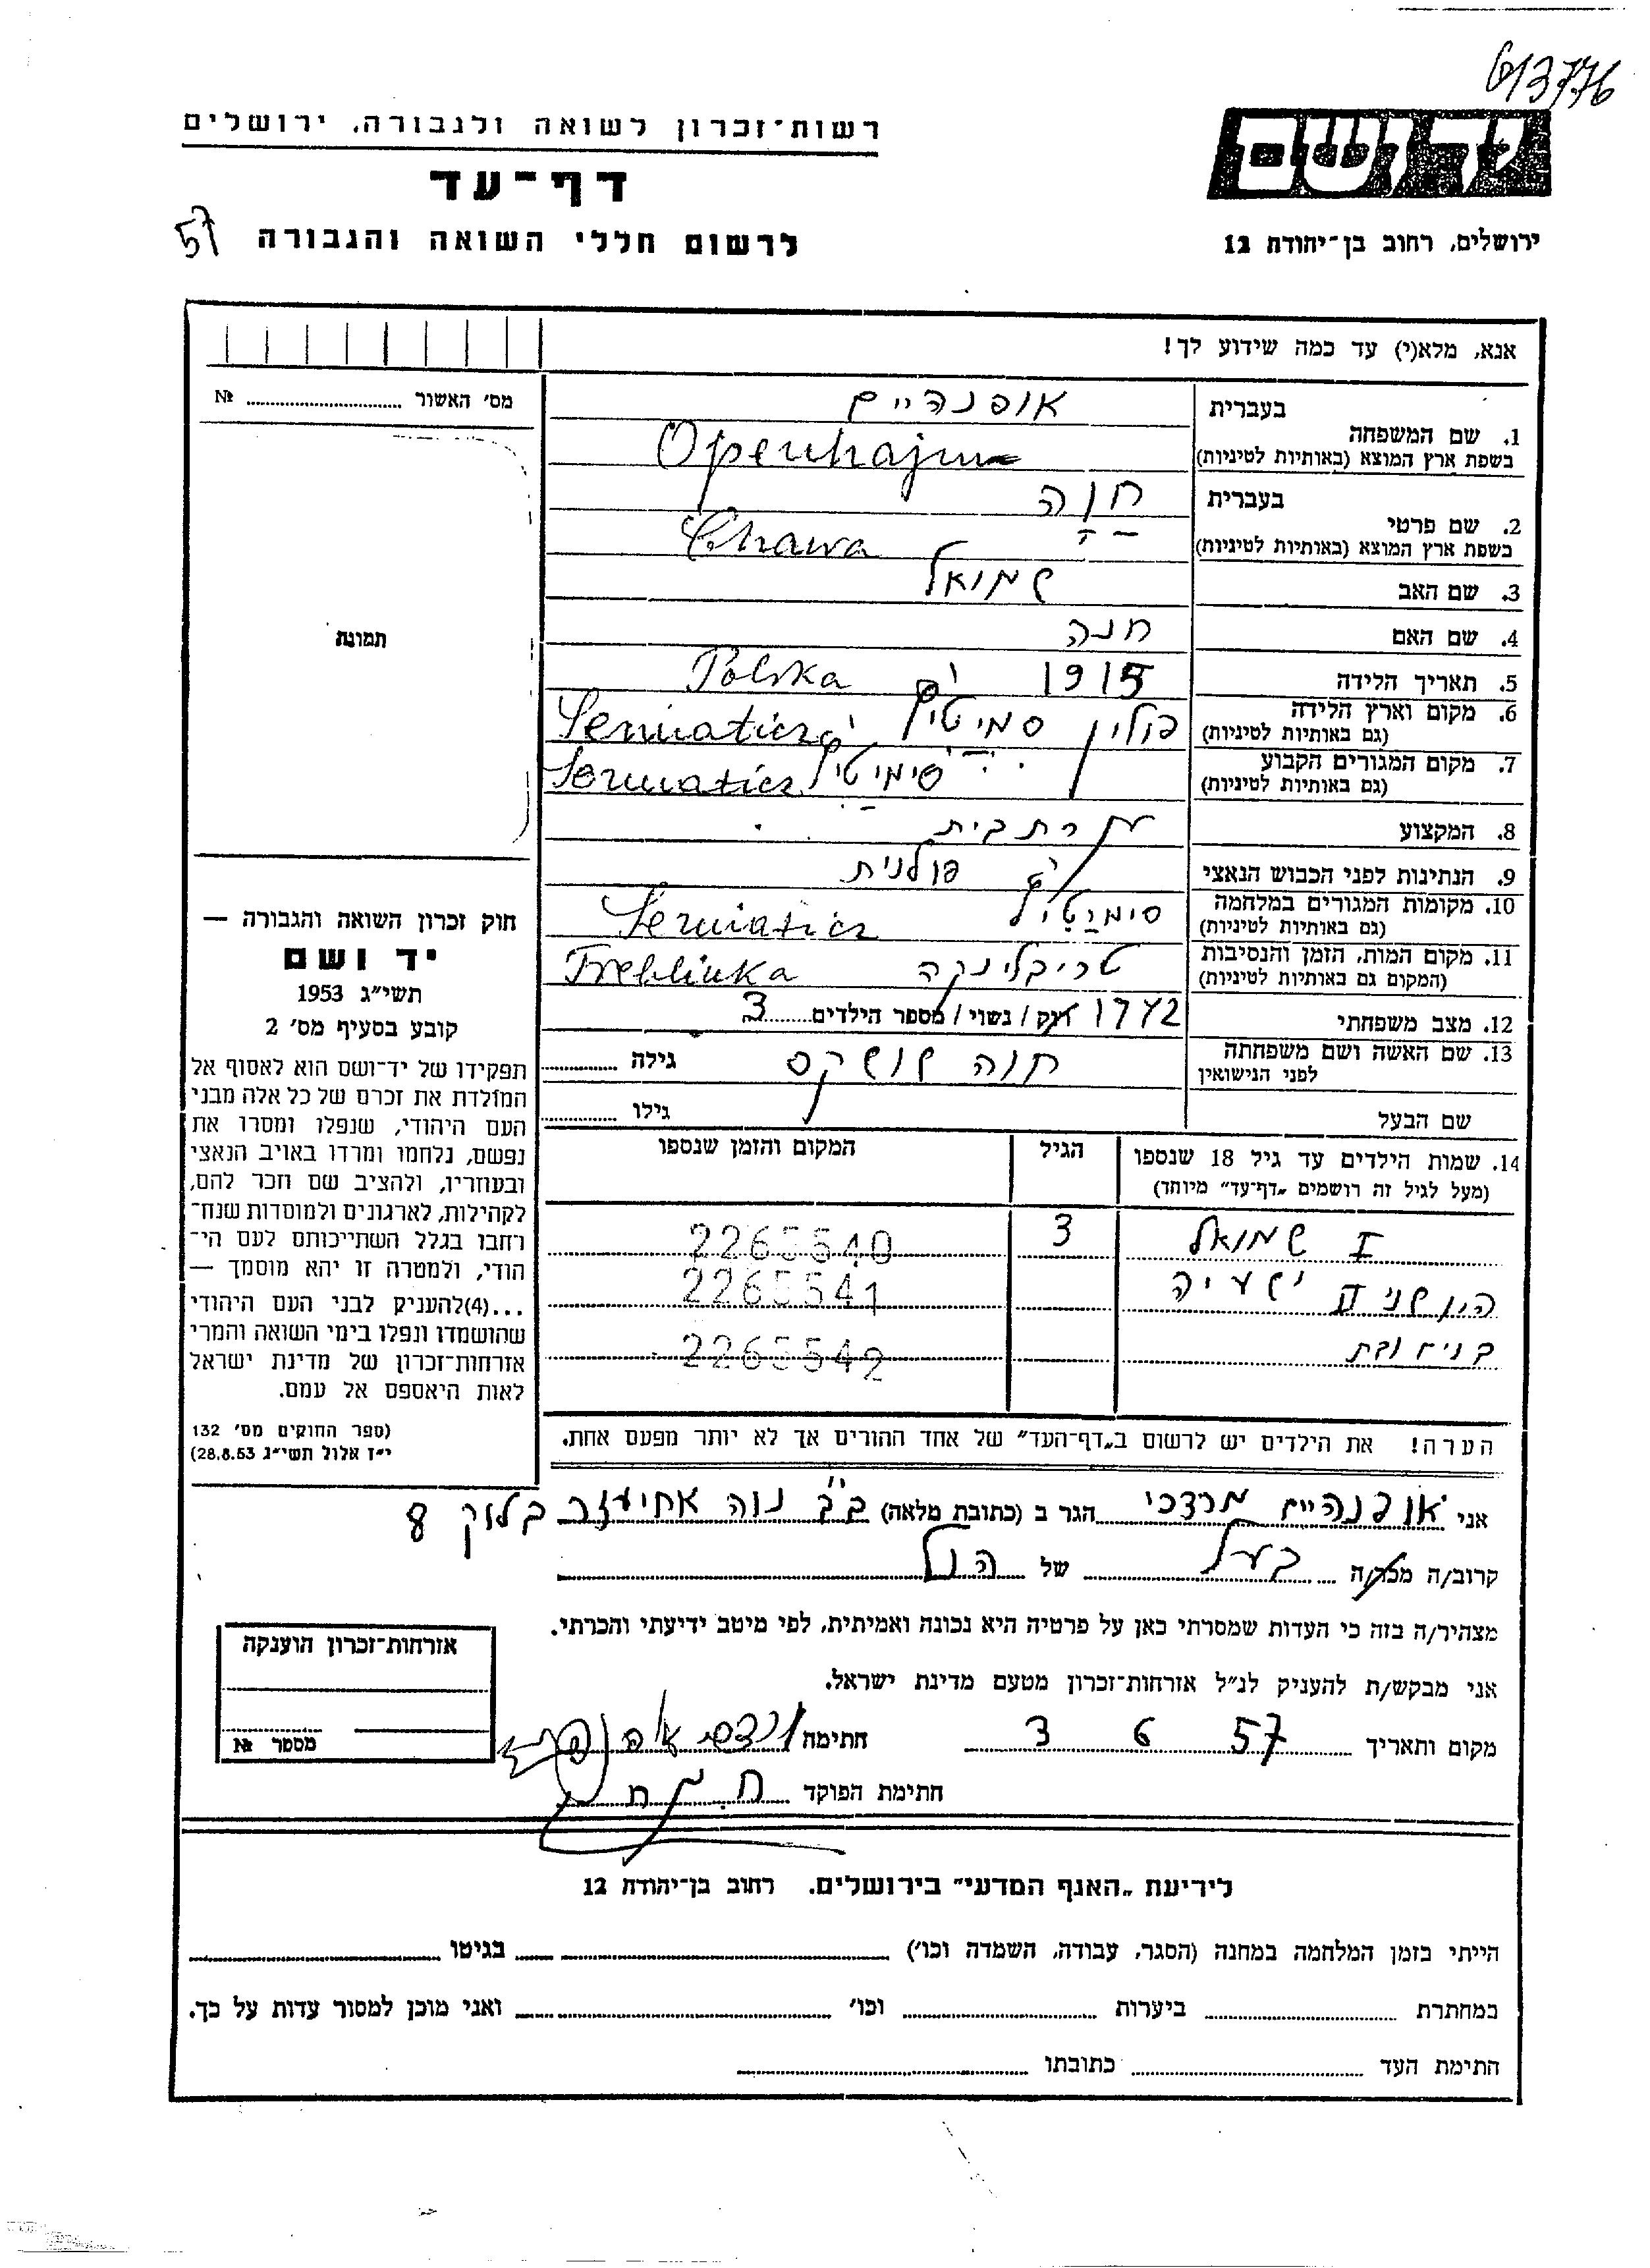 613776
רשות־זכרון לשואה ולגבורה, ירושלים
יד ושם
דף־עד
לרשום חללי השואה והגבורה
57
ירושלים, רחוב בן־יהודה 12
אנא, מלא(י) עד כמה שידוע לך!
מס׳ האשור ........ №
תמונה
חוק זכרון השואה והגבורה —
יד ושם
תשי״ג 1953
קובע בסעיף מס׳ 2
תפקידו של יד־ושם הוא לאסוף אל
המולדת את זכרם של כל אלה מבני
העם היהודי, שנפלו ומסרו את
נפשם, נלחמו ומרדו באויב הנאצי
ובעוזריו, ולהציב שם וזכר להם,
לקהילות, לארגונים ולמוסדות שנח־
רחבו בגלל השתייכותם לעם הי־
הודי, ולמטרה זו יהא מוסמך —
...(4)להעניק לבני העם היהודי
שהושמדו ונפלו בימי השואה והמרי
אזרחות־זכרון של מדינת ישראל
לאות היאספם אל עמם.
(ספר החוקים מס׳ 132
י״ז אלול תשי״ג 28.8.53)
בעברית אופנהיים
1. שם המשפחה
בשפת ארץ המוצא (באותיות לטיניות) Openhajm
בעברית חוה
2. שם פרטי
בשפת ארץ המוצא (באותיות לטיניות) Chawa
3. שם האב שמואל
4. שם האם חנה
5. תאריך הלידה 1915 Polska
6. מקום וארץ הלידה
(גם באותיות לטיניות) פולין סמיטיץ Semiaticz
7. מקום המגורים הקבוע
(גם באותיות לטיניות) סימיטיץ Semiaticz
8. המקצוע עקרת בית
9. הנתינות לפני הכבוש הנאצי פולנית
10. מקומות המגורים במלחמה
(גם באותיות לטיניות) סימיטיץ Semiaticz
11. מקום המות, הזמן והנסיבות
(המקום גם באותיות לטיניות) טריבלינקה Trebliuka
12. מצב משפחתי 1942 רוק / נשוי / מספר הילדים 3
13. שם האשה ושם משפחתה
לפני הנישואין חוה שושקס גילה
שם הבעל גילו
14. שמות הילדים עד גיל 18 שנספו הגיל המקום והזמן שנספו
(מעל לגיל זה רושמים „דף־עד״ מיוחד)
I שמואל 3 2265540
השני II ישעיה 2265541
2265542
הערה! את הילדים יש לרשום ב„דף־העד״ של אחד ההורים אך לא יותר מפעם אחת.
אני אופנהיים מרדכי הגר ב (כתובת מלאה) ב״ב נוה אחיעזר בלוק 8
קרוב/ה מכר/ה בעל של הנ״ל
מצהיר/ה בזה כי העדות שמסרתי כאן על פרטיה היא נכונה ואמיתית, לפי מיטב ידיעתי והכרתי.
אני מבקש/ת להעניק לנ״ל אזרחות־זכרון מטעם מדינת ישראל.
מקום ותאריך 57 6 3 חתימה
חתימת הפוקד
אזרחות־זכרון הוענקה
מספר №
לידיעת „האגף המדעי״ בירושלים. רחוב בן־יהודה 12
הייתי בזמן המלחמה במחנה (הסגר, עבודה, השמדה וכו׳) בגיטו
במחתרת ביערות וכו׳ ואני מוכן למסור עדות על כך.
חתימת העד כתובתו